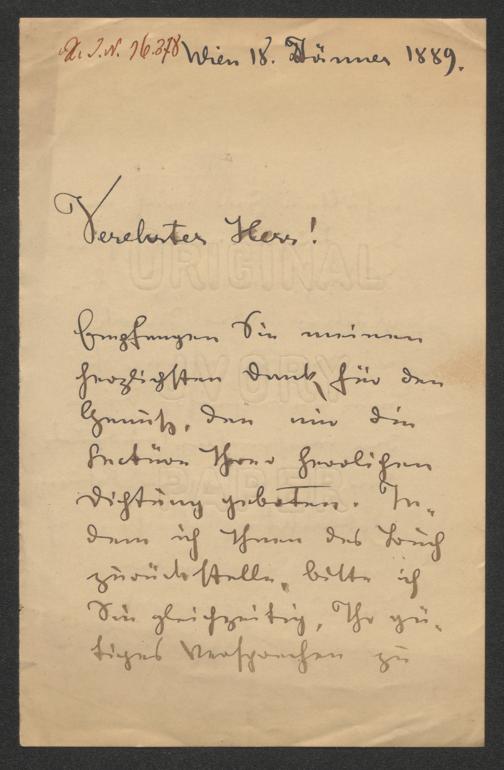 H. I. N. 76.378
Wien 18. Jänner 1889.
Verehrter Herr!
ORIGINAL
IVORY
PAPER
Empfangen Sie meinen
herzlichsten Dank für den
Genuß, den mir die
Lectüre Ihrer herrlichen
Dichtung geboten. In-
dem ich Ihnen das Buch
zurückstelle, bitte ich
Sie gleichzeitig, Ihr gü-
tiges Versprechen zu